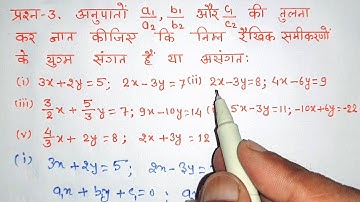 प्रश्न-3. अनुपातों a₁/a₂, b₁/b₂ और c₁/c₂ की तुलना
कर ज्ञात कीजिए कि निम्न रैखिक समीकरणों
के युग्म संगत हैं या असंगत:
(i) 3x+2y=5; 2x-3y=7 (ii) 2x-3y=8; 4x-6y=9
(iii) 3/2x+5/3y=7; 9x-10y=14 5x-3y=11; -10x+6y=-22
(v) 4/3x+2y=8; 2x+3y=12
(i) 3x+2y=5, 2x-3y=
a₁x+b₁y+c₁=0